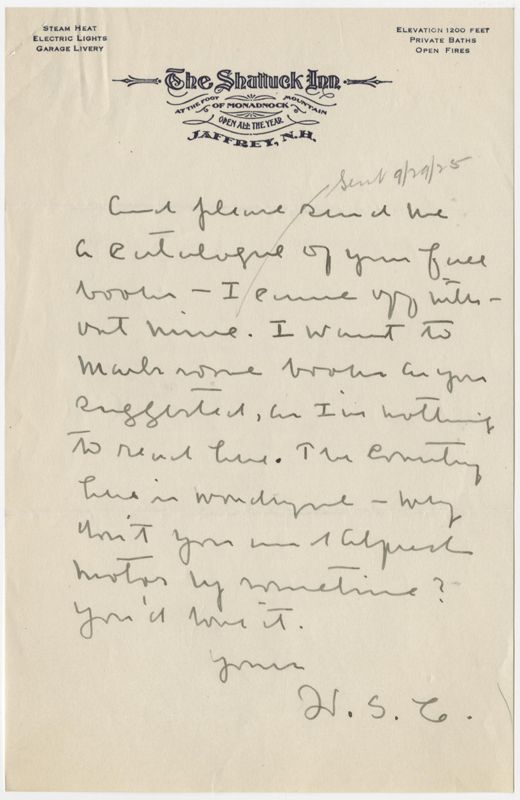 STEAM HEAT
ELECTRIC LIGHTS
GARAGE LIVERY
ELEVATION 1200 FEET
PRIVATE BATHS
OPEN FIRES
The Shattuck Inn
AT THE FOOT OF MONADNOCK MOUNTAIN
OPEN ALL THE YEAR
JAFFREY, N.H.
Sent 9/29/25
And please send me
a catalogue of your fall
books – I came off with-
out mine. I want to
mark some books as you
suggested, as I've nothing
to read here. The Country
here is wonderful – why
don't you and Alfred
motor sometime?
You'd love it.
Yours
W. S. C.